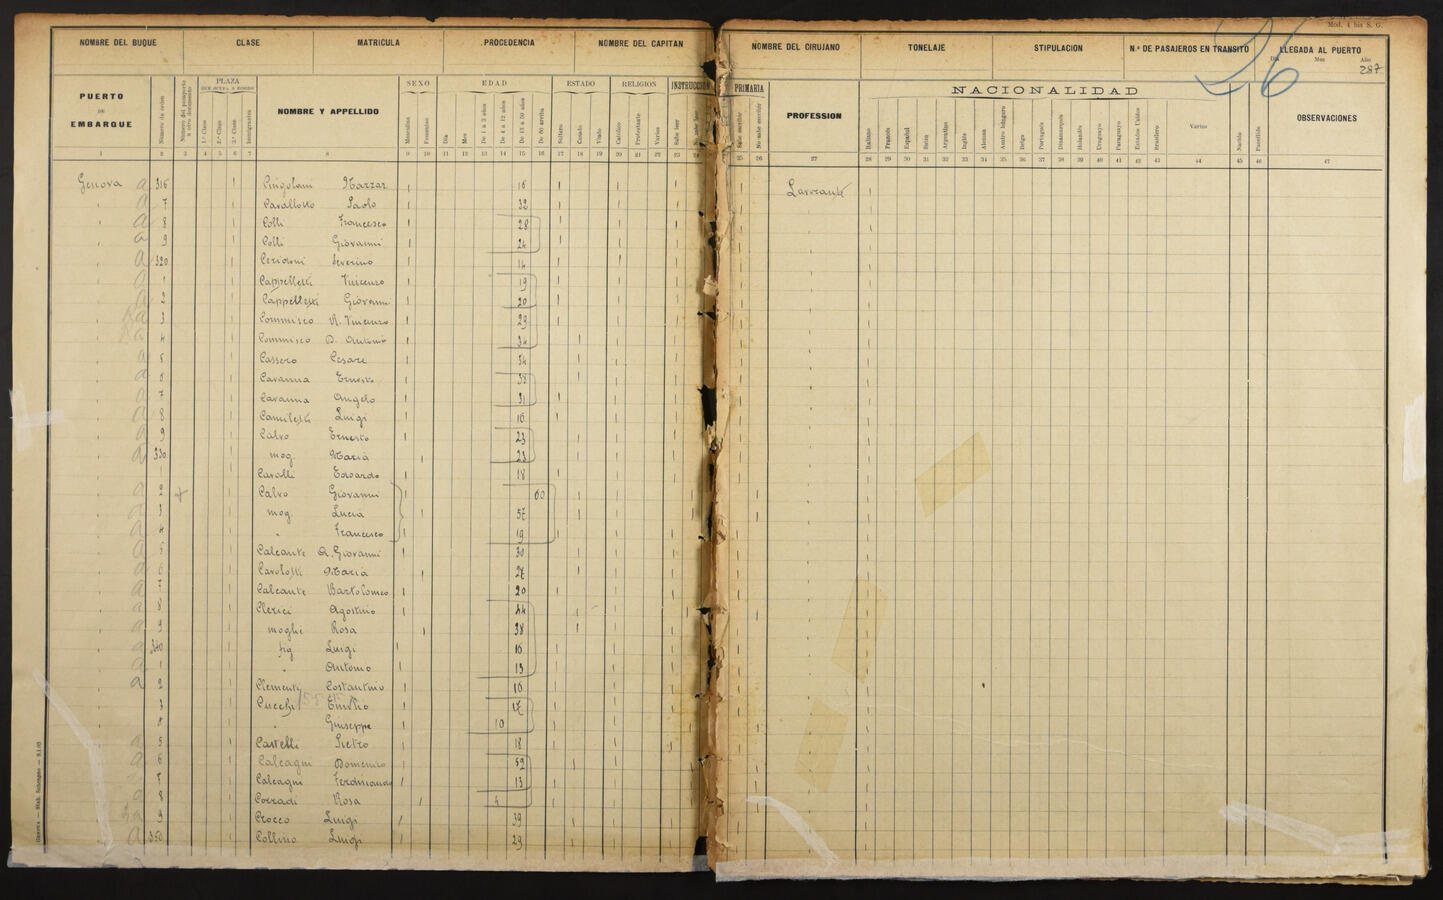 Mod. 4 bis S. G.
26
NOMBRE DEL BUQUE CLASE MATRICULA PROCEDENCIA NOMBRE DEL CAPITAN NOMBRE DEL CIRUJANO TONELAJE STIPULACION N.º DE PASAJEROS EN TRANSITO LLEGADA AL PUERTO
Dia Mes Año
287
PUERTO DE EMBARQUE Número de orden Número del pasaporte u otro documento PLAZA QUE OCUPA A BORDO 1.ª Clase 2.ª Clase 3.ª Clase Inmigrantes NOMBRE Y APPELLIDO SEXO Masculino Femenino EDAD Dia Mes De 1 a 3 años De 4 a 12 años De 13 a 59 años De 60 arriba ESTADO Soltero Casado Viudo RELIGION Católico Protestante Varios INSTRUCCION PRIMARIA Sabe leer No sabe leer Sabe escribir No sabe escribir PROFESSION NACIONALIDAD Italiano Francés Español Suizo Argentino Inglés Alemán Austro húngaro Belga Portugués Dinamarqués Holandés Uruguayo Paraguayo Estados Unidos Brasilero Varios Nacido Fallecido OBSERVACIONES
1 2 3 4 5 6 7 8 9 10 11 12 13 14 15 16 17 18 19 20 21 22 23 24 25 26 27 28 29 30 31 32 33 34 35 36 37 38 39 40 41 42 43 44 45 46 47
Genova a 316 Cingolani Nazzar. 16 Lavorante
a 7 Cavallotto Paolo 32
a 8 Colli Francesco 28
a 9 Colli Giovanni 24
a 320 Ceridoni Severino 14
a 1 Cappelletti Vincenzo 19
a 2 Cappelletti Giovanni 20
a 3 Commisco N. Vincenzo 29
a 4 Commisco D. Antonio 34
a 5 Cassero Cesare 34
a 6 Cavanna Ernesto 38
a 7 Cavanna Angelo 31
a 8 Camiletti Luigi 16
a 9 Calvo Ernesto 23
a 330 mog. Maria 23
1 Cavalli Edoardo 18
a 2 Calvo Giovanni 60
a 3 mog. Lucia 57
a 4 " Francesco 19
a 5 Calcante A. Giovanni 30
a 6 Cavolotti Maria 27
a 7 Calcante Bartolomeo 20
a 8 Clerici Agostino 44
a 9 moghe Rosa 38
a 340 fig Luigi 16
a 1 " Antonio 13
a 2 Clementi Costantino 16
3 Cucchi Emilio 17
4 " Giuseppe 10
a 5 Castelli Pietro 18
a 6 Calcagni Domenico 52
a 7 Calcagni Ferdinando 13
a 8 Corradi Rosa 4
a 9 Crocco Luigi 39
a 350 Collino Luigi 29